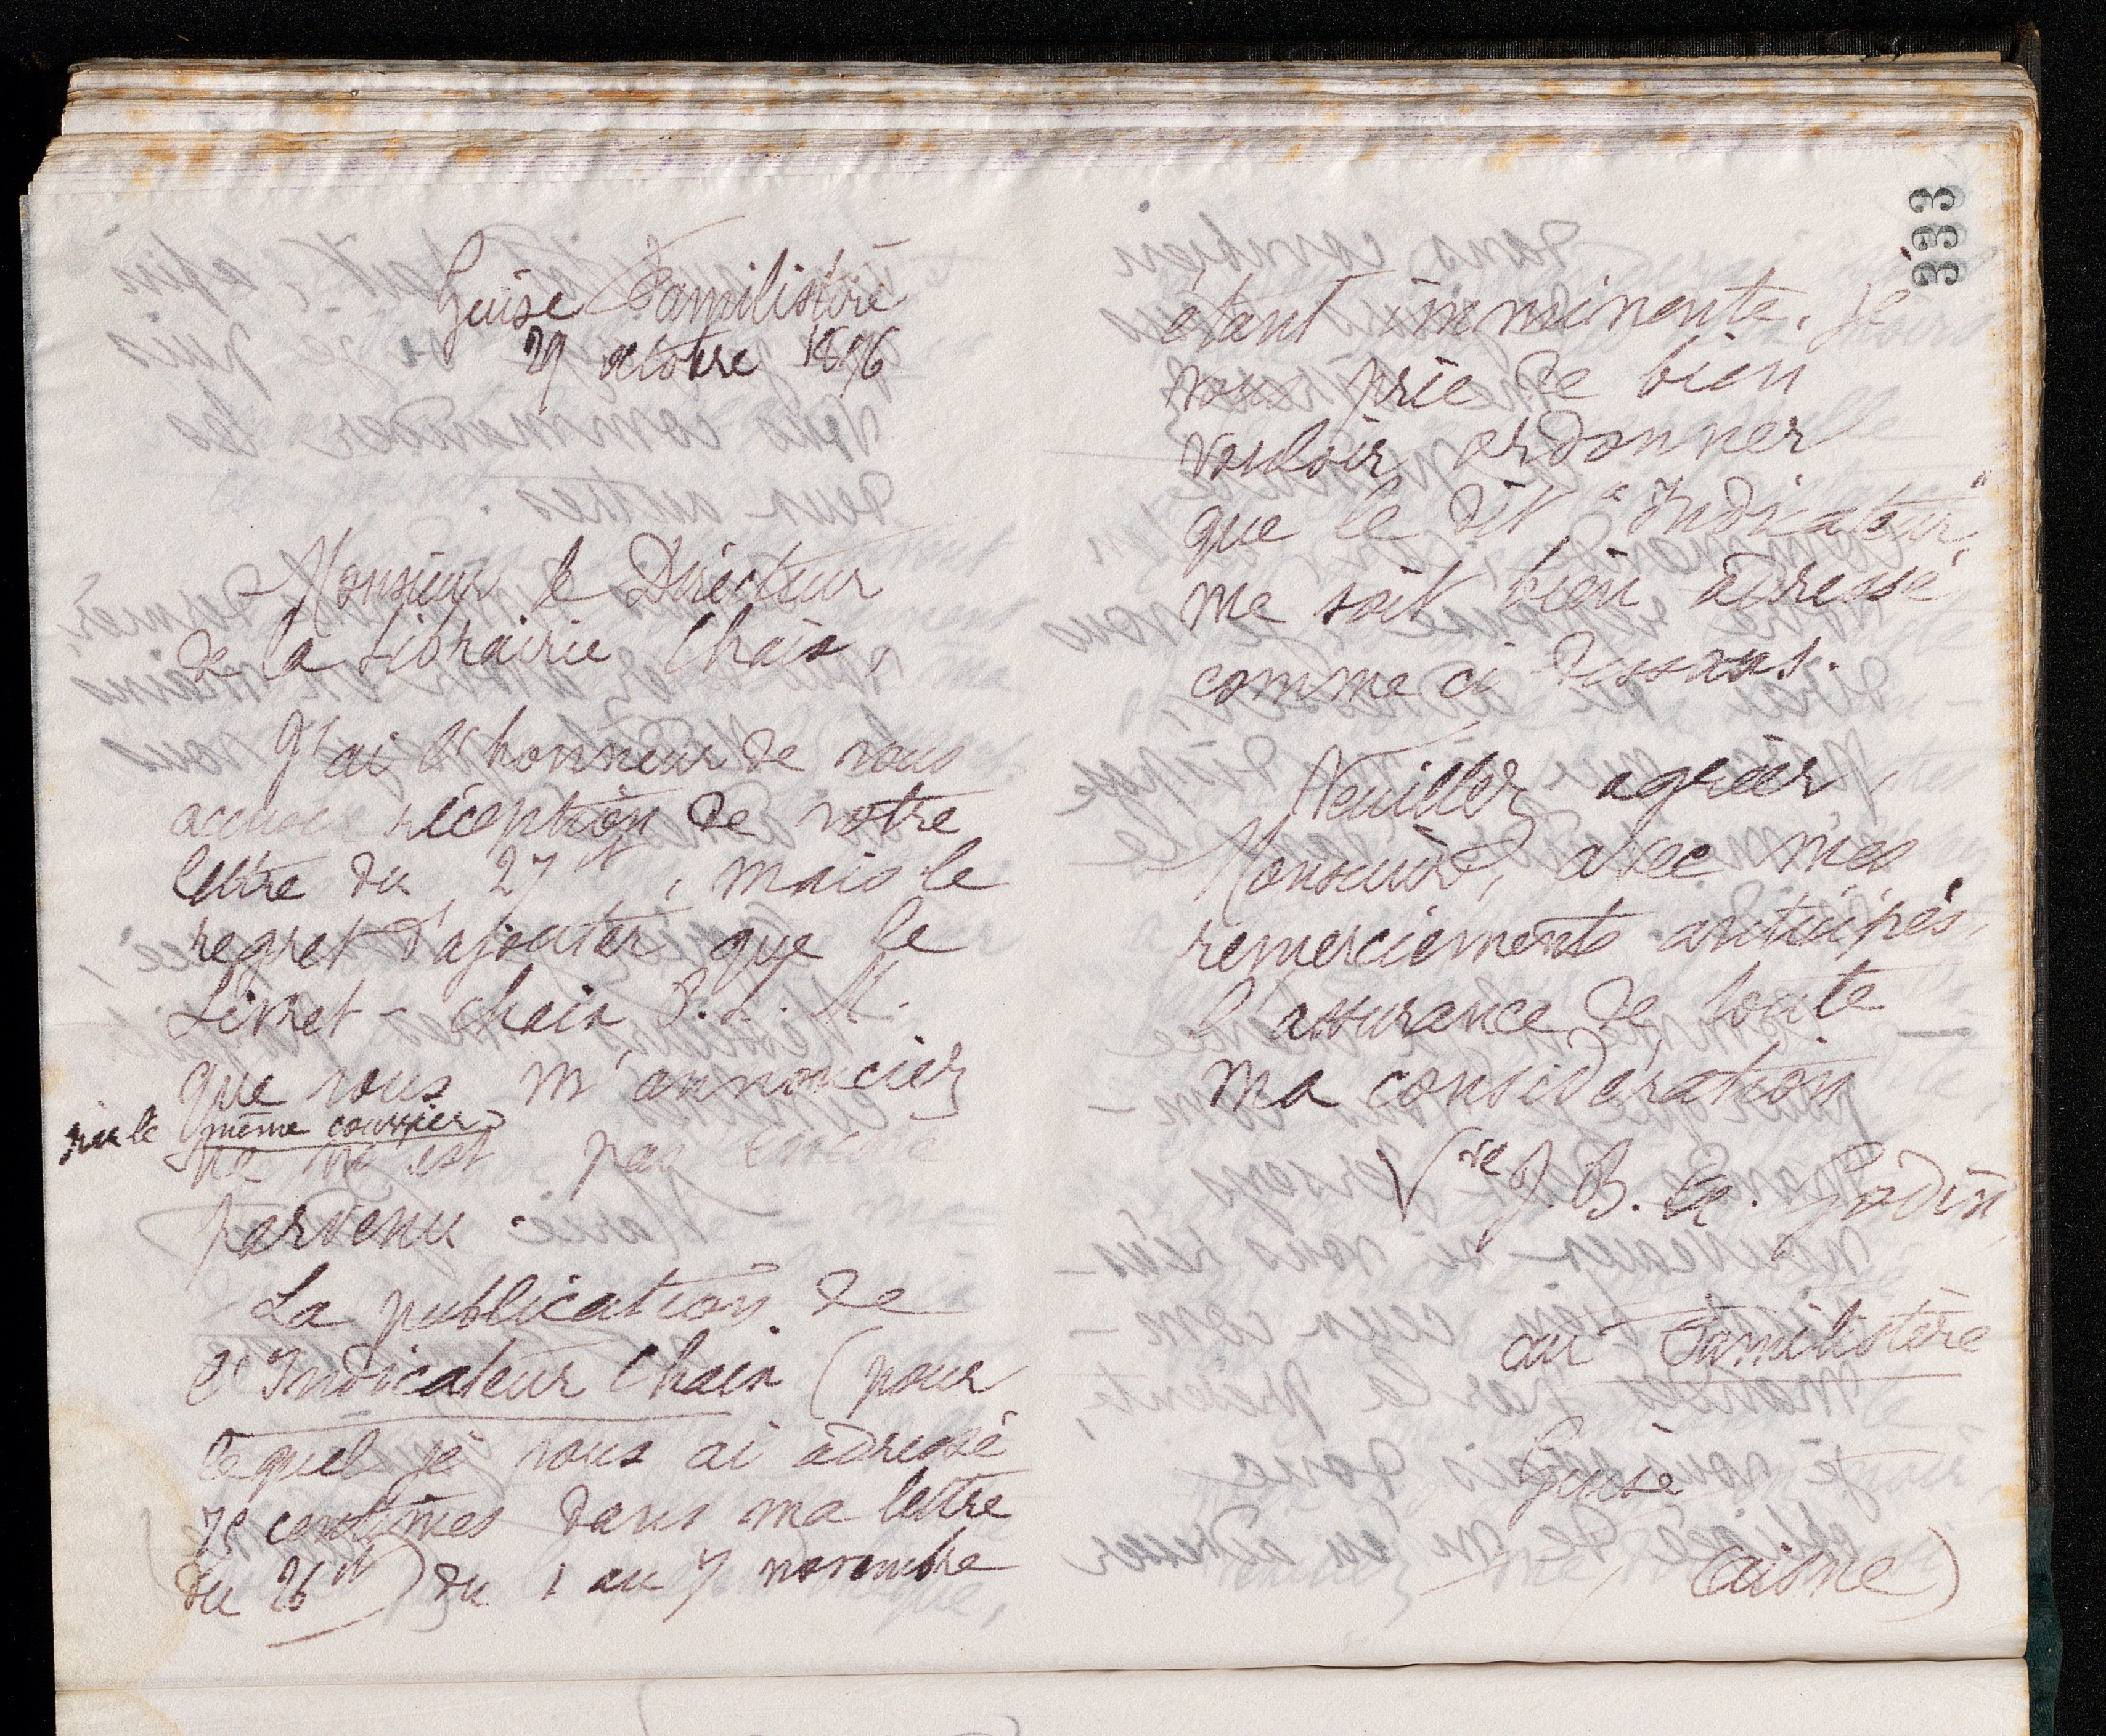 Guise Familistère
29 octobre 1896
Monsieur le Directeur
de la Librairie Chaix,
J'ai l'honneur de vous
accuser réception de votre
lettre du 27 , mais le
regret d'ajouter que le
Livret-Chaix P.L.M.
que vous m'annonciez
par le même courrier
ne m'est pas encore
parvenu.
La publication de
l'Indicateur Chaix (pour
lequel je vous ai adressé
75 centimes dans ma lettre
du 26 ct) du 1 au 7 novembre
333
étant imminente, je
vous prie de bien
vouloir ordonner
que le dit "Indicateur"
me soit bien adressé
comme ci-dessous.
Veuillez agréer,
Monsieur, avec mes
remerciements anticipés,
l'assurance de toute
ma considération
Vve J. B. A. Godin
au Familistère
Guise
(Aisne)